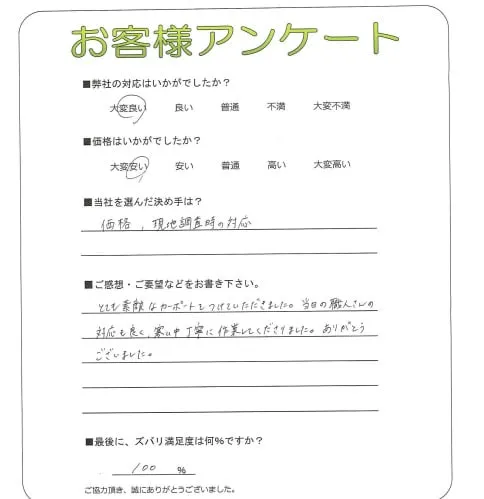 お客様アンケート
■弊社の対応はいかがでしたか？
大変良い 良い 普通 不満 大変不満
■価格はいかがでしたか？
大変安い 安い 普通 高い 大変高い
■当社を選んだ決め手は？
価格、現地調査時の対応
■ご感想・ご要望などをお書き下さい。
とても素敵なカーポートをつけていただきました。当日の職人さんの
対応も良く、寒い中丁寧に作業してくださりました。ありがとう
ございました。
■最後に、ズバリ満足度は何%ですか？
100 %
ご協力頂き、誠にありがとうございました。